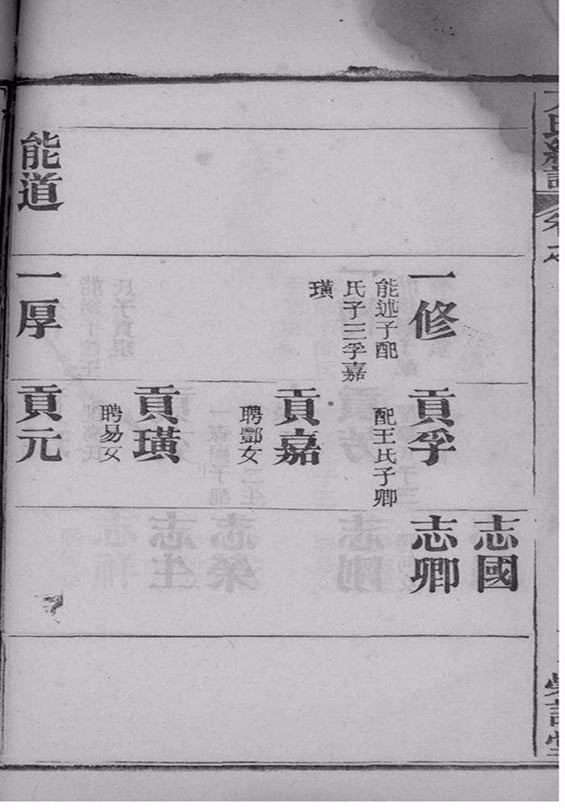 志國
一修
能述子配
氏子三孚嘉
璜
貢孚
配王氏子卿
志卿
貢嘉
聘酆女
貢璜
聘易女
能道
一厚
貢元